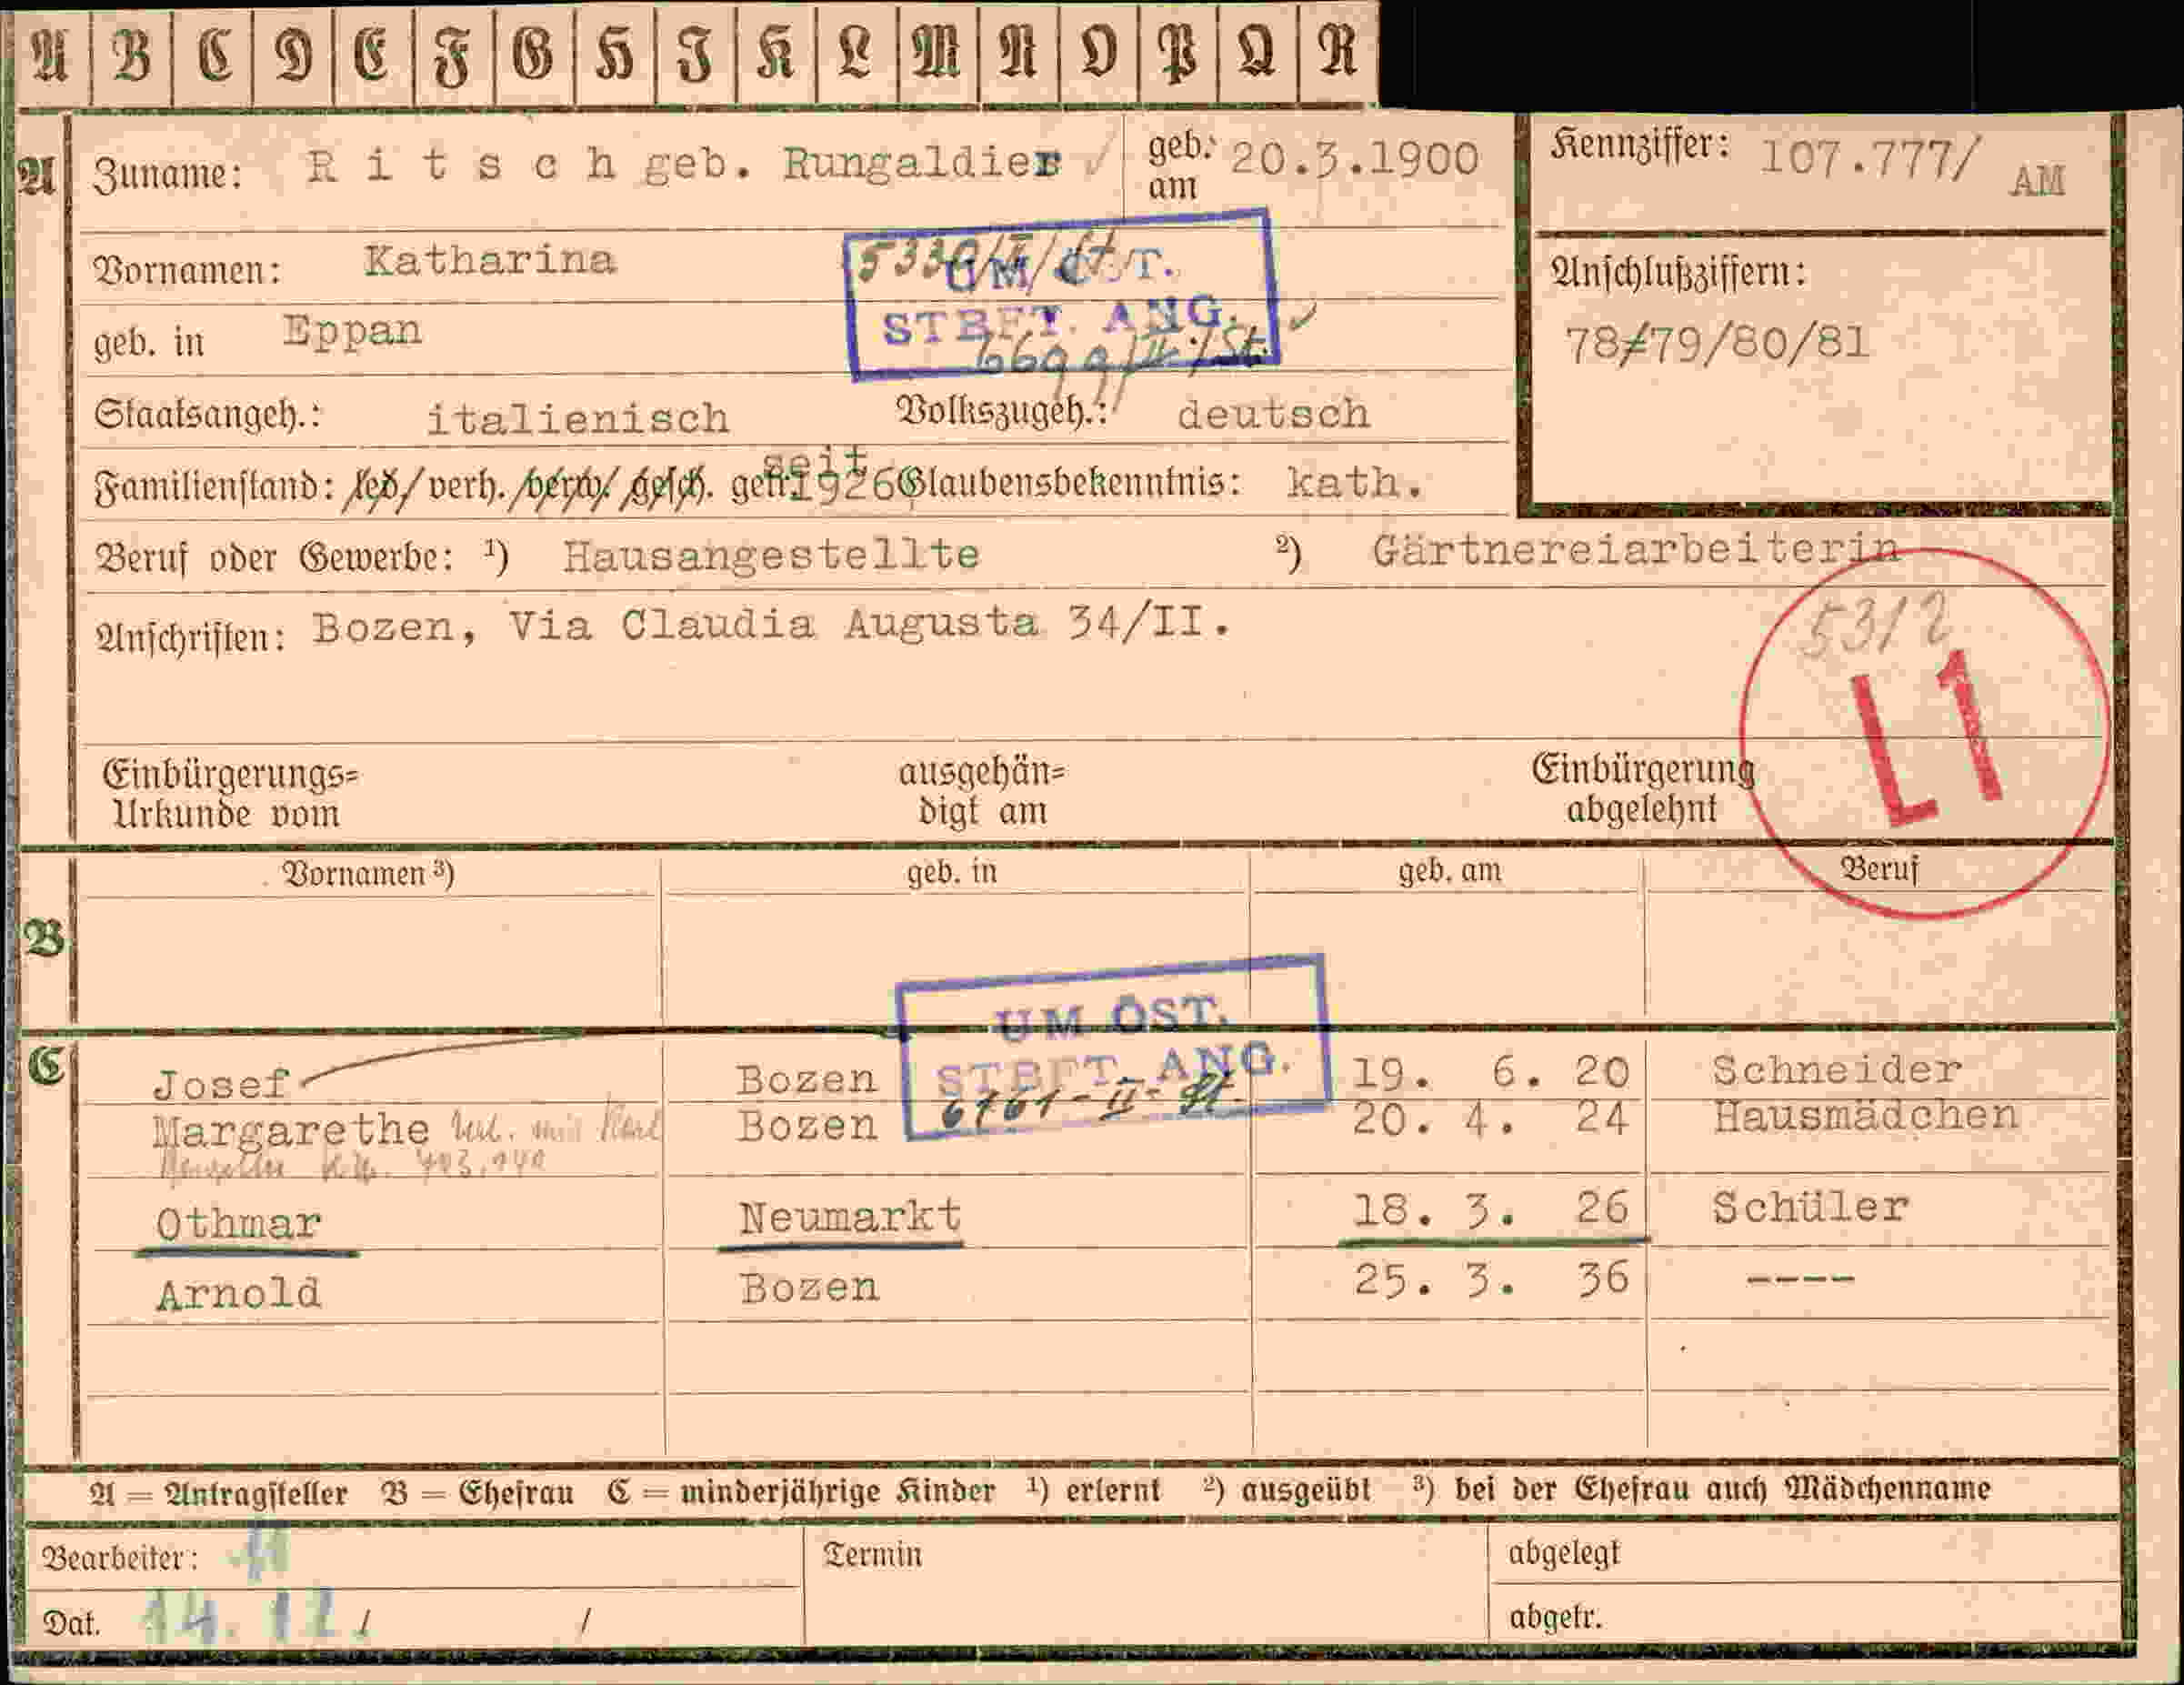 A B C D E F G H I K L M N O P Q R
A Zuname: R i t s c h geb. Rungaldier geb. am 20.3.1900
Kennziffer: 107.777/ AM
Vornamen: Katharina
UM ÖST.
STBFT. ANG.
Anschlußziffern:
78/79/80/81
geb. in Eppan
6699/II./St.
Staatsangeh.: italienisch Volkszugeh.: deutsch
Familienstand: led/ verh. /verw/ gesch. getr. seit 1926 Glaubensbekenntnis: kath.
Beruf oder Gewerbe: ¹) Hausangestellte ²) Gärtnereiarbeiterin
Anschriften: Bozen, Via Claudia Augusta 34/II.
53/2
L1
Einbürgerungs=
Urkunde vom
ausgehän=
digt am
Einbürgerung
abgelehnt
B Vornamen ³) geb. in geb. am Beruf
UM ÖST.
STBFT. ANG.
6761-II-St.
C Josef Bozen 19. 6. 20 Schneider
Margarethe Bozen 20. 4. 24 Hausmädchen
Othmar Neumarkt 18. 3. 26 Schüler
Arnold Bozen 25. 3. 36 ----
A = Antragsteller B = Ehefrau C = minderjährige Kinder ¹) erlernt ²) ausgeübt ³) bei der Ehefrau auch Mädchenname
Bearbeiter: Termin abgelegt
Dat. 14. 12 / / abgetr.